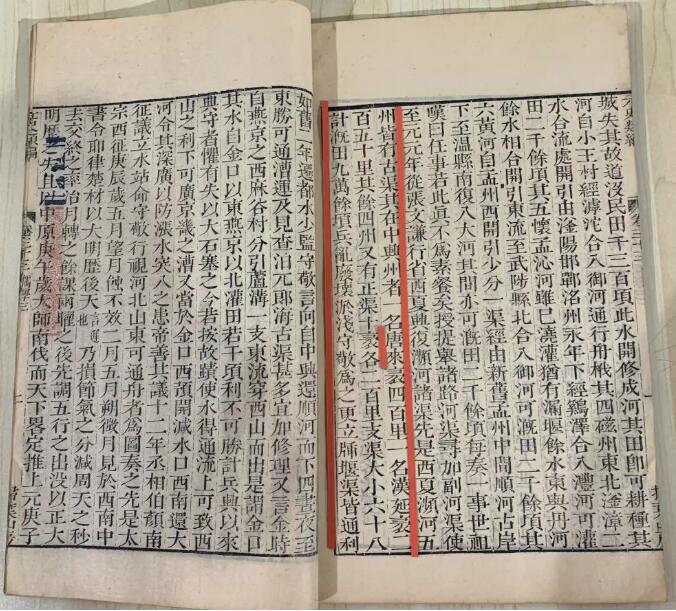 城失其故道沒民田千三百頃此水開修成河其田即可耕種其
河自小王村經滹沱合入御河通行舟栰其四磁州東北滏漳二
水合流處開引由滏陽邯鄲洺州永年下經鷄澤合入澧河可灌
田三千餘頃其五懷孟沁河雖已澆灌猶有漏堰餘水東與丹河
餘水相合開引東流至武陟縣北合入御河可溉田二千餘頃其
六黃河自孟州西開引少分一渠經由新舊孟州中間順河古岸
下至溫縣南復入大河其間亦可溉田二千餘頃每奏一事世祖
嘆曰任事若此眞不爲素餐矣授提舉諸路河渠尋加副河渠使
至元元年從張文謙行省西夏興復瀕河諸渠先是西夏瀕河五
州皆有古渠其在中興州者一名唐來袤四百里一名漢延袤二
百五十里其餘四州又有正渠十袤各二百里支渠大小六十八
計溉田九萬餘頃兵亂廢壞淤淺守敬爲之更立牐堰渠皆通利
如舊二年遷都水少監守敬言向自中興還順河而下四晝夜至
東勝可通漕運及見查泊兀郎海古渠甚多宜加修理又言金時
自燕京之西麻谷村分引蘆溝一支東流穿西山而出是謂金口
其水自金口以東燕京以北灌田若干頃利不可勝計兵興以來
典守者懼有失以大石塞之今若按故蹟使水得通流上可致西
山之利下可廣京畿之漕又當於金口西預開減水口西南還大
河令其深廣以防漲水突入之患帝善其議十二年丞相伯顏南
征議立水站命守敬行視河北山東可通舟者爲圖奏之先是太
宗西征庚辰歲五月望月蝕不效二月五月朔微月見於西南中
書令耶律楚材以大明曆後天乃損節氣之分減周天之秒
去交終之率治月轉之餘課兩曜之後先調五行之出沒以正大
明曆之失且以中原庚午歲大師南伐而天下畧定推上元庚子